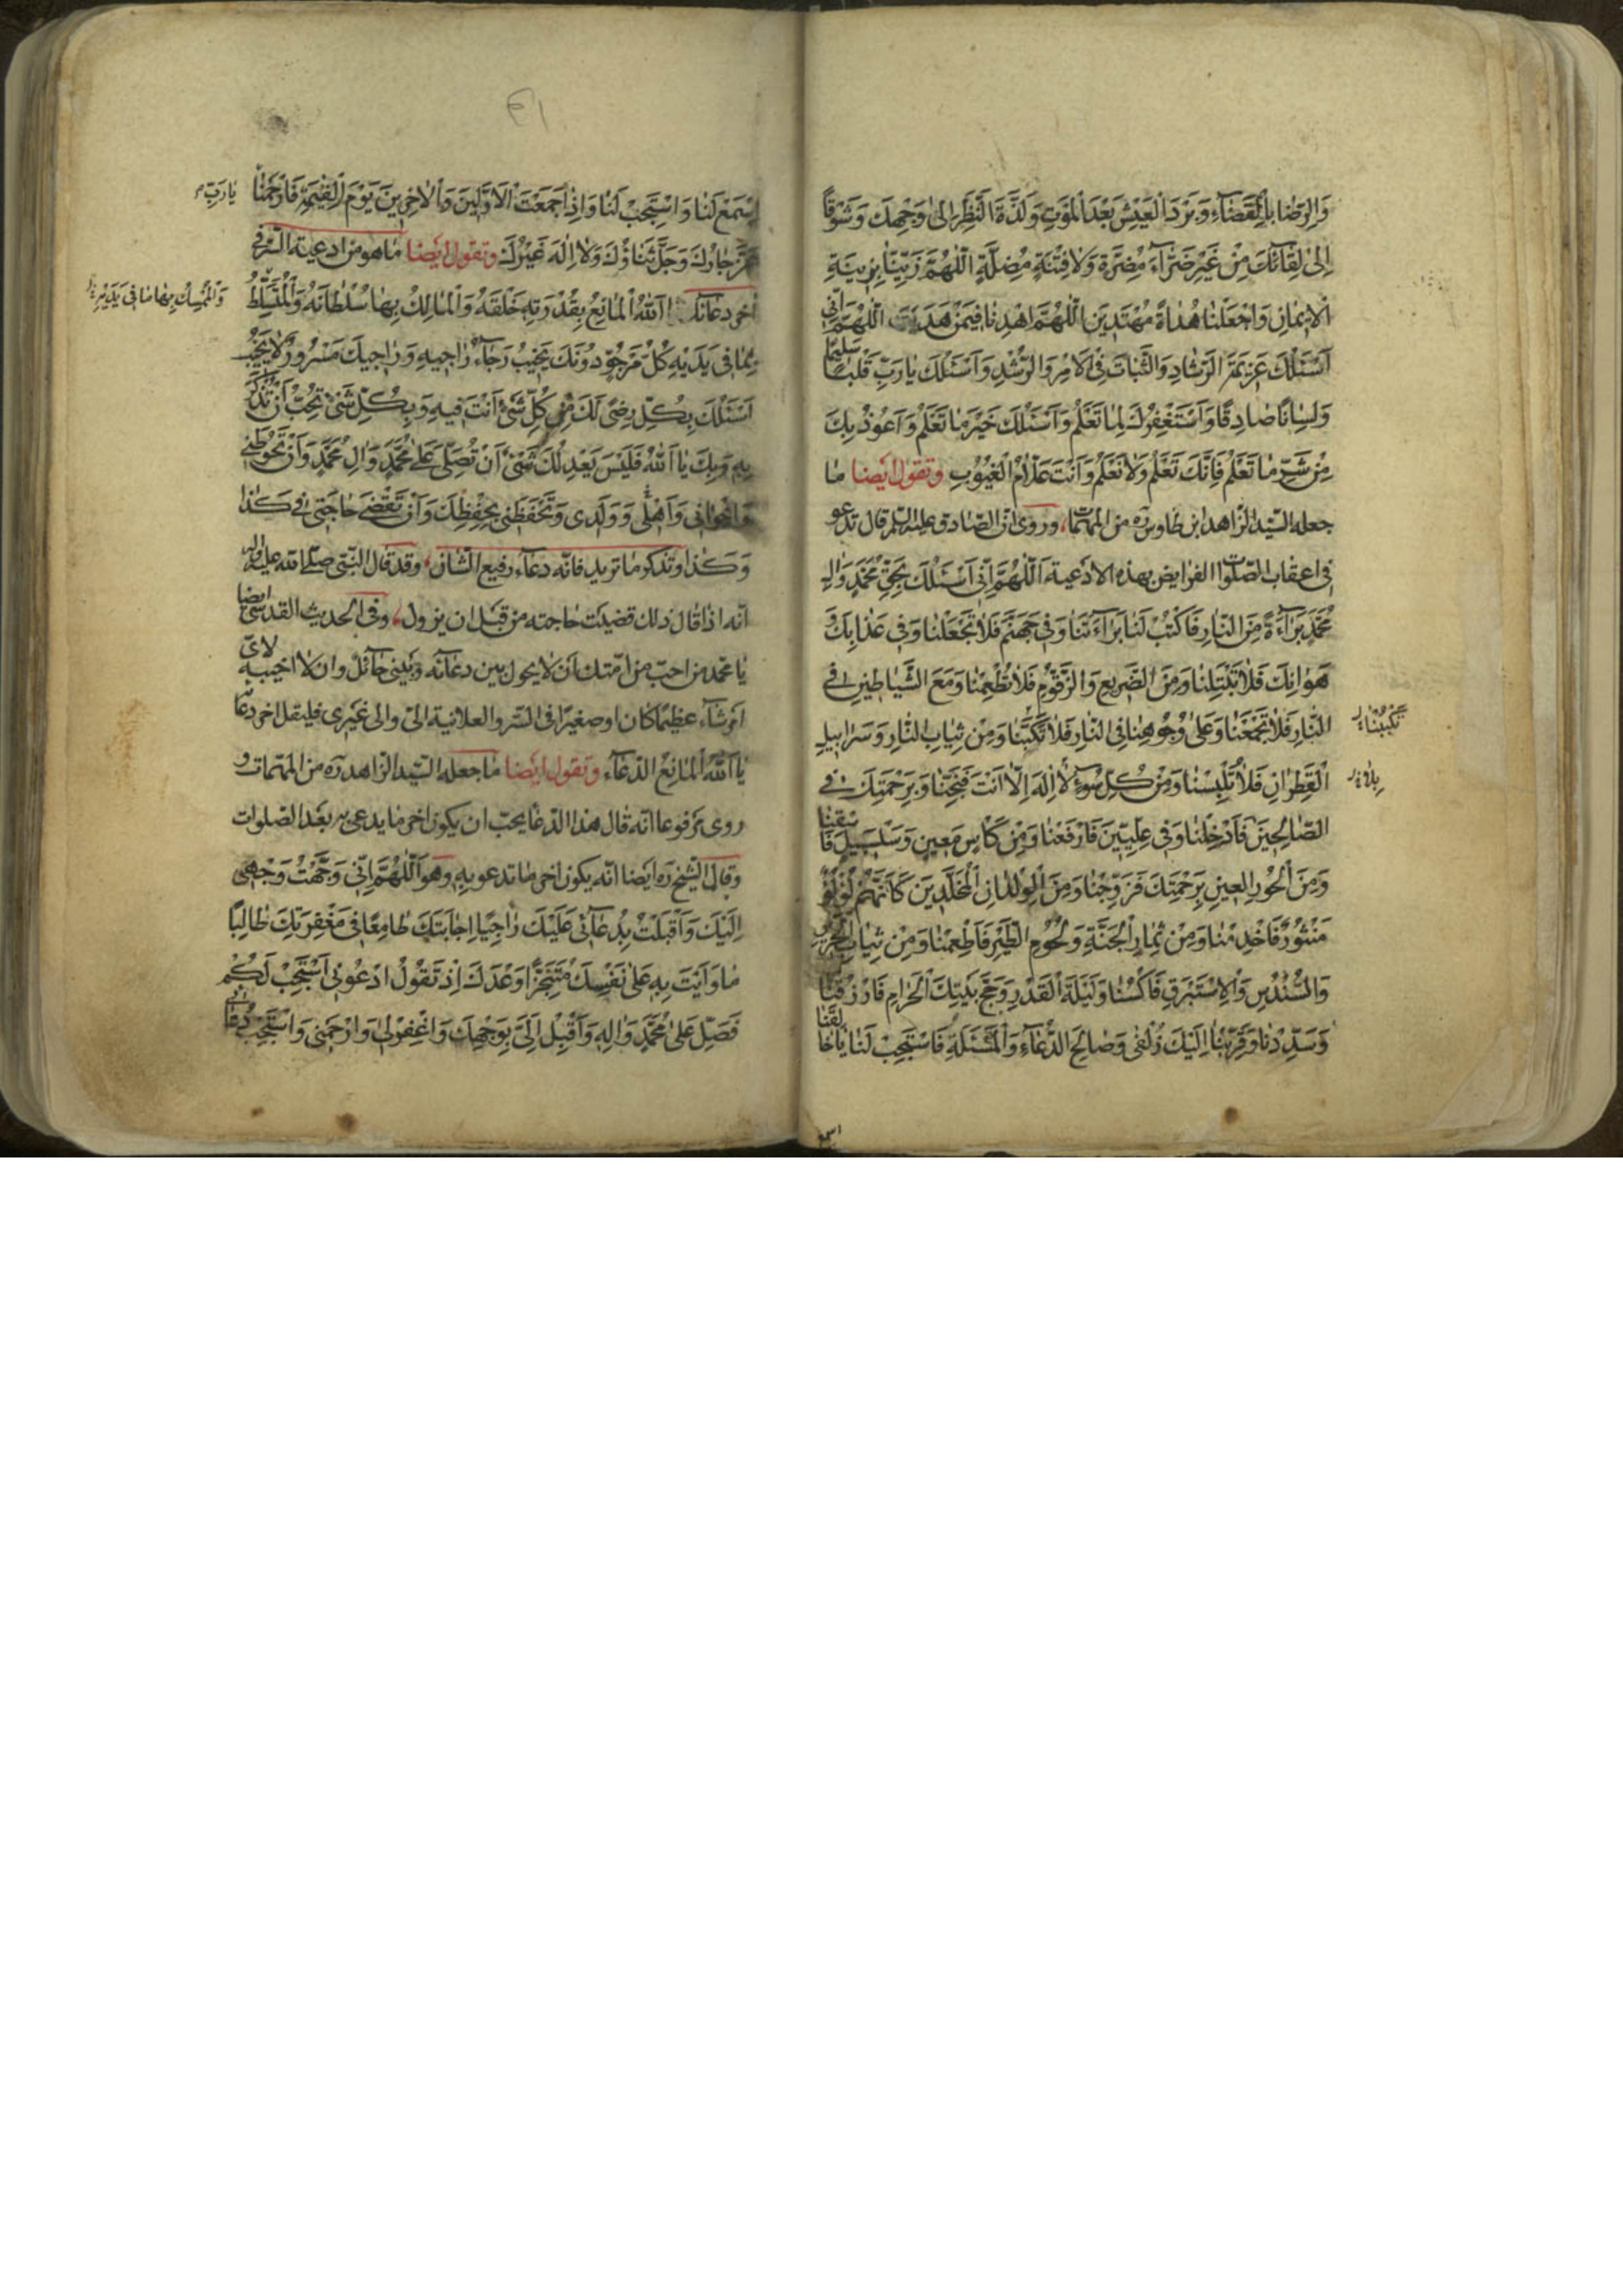 وَالرِّضَا بِالْقَضَآءِ وَبَرْدَ الْعَيْشِ بَعْدَ الْمَوْتِ وَلَذَّةَ النَّظَرِ اِلىٰ وَجْهِكَ وَشَوْقًا
اِلىٰ لِقَآئِكَ مِنْ غَيْرِ ضَرَّآءَ مُضِرَّةٍ وَلَا فِتْنَةٍ مُضِلَّةٍ اَللّٰهُمَّ زَيِّنَّا بِزِينَةِ
الْاِيمَانِ وَاجْعَلْنَا هُدَاةً مُهْتَدِينَ اَللّٰهُمَّ اهْدِنَا فِيمَنْ هَدَيْتَ اَللّٰهُمَّ اِنِّي
اَسْئَلُكَ عَزِيمَةَ الرَّشَادِ وَالثَّبَاتَ فِي الْاَمْرِ وَالرُّشْدِ وَاَسْئَلُكَ يَا رَبِّ قَلْبًا سَلِيمًا
وَلِسَانًا صَادِقًا وَاَسْتَغْفِرُكَ لِمَا تَعْلَمُ وَاَسْئَلُكَ خَيْرَ مَا تَعْلَمُ وَاَعُوذُ بِكَ
مِنْ شَرِّ مَا تَعْلَمُ فَاِنَّكَ تَعْلَمُ وَلَا نَعْلَمُ وَاَنْتَ عَلَّامُ الْغُيُوبِ وتقول ايضا ما
جعله السيد الزاهد ابن طاوس ره من المهمات وروى ان الصادق عليه السلم قال تدعو
فى اعقاب الصلوات الفرايض بهذه الادعية اَللّٰهُمَّ اِنِّي اَسْئَلُكَ بِحَقِّ مُحَمَّدٍ وَآلِ
مُحَمَّدٍ بَرَآءَةً مِنَ النَّارِ فَاكْتُبْ لَنَا بَرَآءَتَنَا وَفِي جَهَنَّمَ فَلَا تَجْعَلْنَا وَفِي عَذَابِكَ وَ
هَوَانِكَ فَلَا تَبْتَلِنَا وَمِنَ الضَّرِيعِ وَالزَّقُّومِ فَلَا تُطْعِمْنَا وَمَعَ الشَّيَاطِينِ فِي
النَّارِ فَلَا تَجْمَعْنَا وَعَلىٰ وُجُوهِنَا فِي النَّارِ فَلَا تَكُبَّنَا وَمِنْ ثِيَابِ النَّارِ وَسَرَابِيلِ
تَكْبُبْنَا
الْقَطِرَانِ فَلَا تُلْبِسْنَا وَمِنْ كُلِّ سُوءٍ لَا اِلٰهَ اِلَّا اَنْتَ فَنَجِّنَا وَبِرَحْمَتِكَ فِي
الصَّالِحِينَ فَاَدْخِلْنَا وَفِي عِلِّيِّينَ فَارْفَعْنَا وَمِنْ كَاْسٍ مَعِينٍ وَسَلْسَبِيلٍ فَاسْقِنَا
وَمِنَ الْحُورِ الْعِينِ بِرَحْمَتِكَ فَزَوِّجْنَا وَمِنَ الْوِلْدَانِ الْمُخَلَّدِينَ كَاَنَّهُمْ لُؤْلُؤٌ
مَنْثُورٌ فَاَخْدِمْنَا وَمِنْ ثِمَارِ الْجَنَّةِ وَلُحُومِ الطَّيْرِ فَاَطْعِمْنَا وَمِنْ ثِيَابِ الْحَرِيرِ
وَالسُّنْدُسِ وَالْاِسْتَبْرَقِ فَاكْسُنَا وَلَيْلَةَ الْقَدْرِ وَحَجَّ بَيْتِكَ الْحَرَامِ فَارْزُقْنَا
وَسَدِّدْنَا وَقَرِّبْنَا اِلَيْكَ زُلْفىٰ وَصَالِحَ الدُّعَآءِ وَالْمَسْئَلَةِ فَاسْتَجِبْ لَنَا يَا خَالِقَنَا
اس
٤١
اِسْمَعْ لَنَا وَاسْتَجِبْ لَنَا وَاِذَا جَمَعْتَ الْاَوَّلِينَ وَالْاٰخِرِينَ يَوْمَ الْقِيٰمَةِ فَارْحَمْنَا
يَا رَبِّ
عَزَّ جَارُكَ وَجَلَّ ثَنَاؤُكَ وَلَا اِلٰهَ غَيْرُكَ وتقول ايضا ما هو من ادعية السر فى
اخر دعائك يَا اَللّٰهُ الْمَانِعُ بِقُدْرَتِهِ خَلْقَهُ وَالْمَالِكُ بِهَا سُلْطَانَهُ وَالْمُتَسَلِّطُ
وَالْمُمْسِكُ بِهَا مَا فِي يَدَيْهِ
بِمَا فِي يَدَيْهِ كُلُّ مَرْجُوٍّ دُونَكَ يَخِيبُ رَجَآءُ رَاجِيهِ وَرَاجِيكَ مَسْرُورٌ لَا يَخِيبُ
اَسْئَلُكَ بِكُلِّ رِضىً لَكَ مِنْ كُلِّ شَيْءٍ اَنْتَ فِيهِ وَبِكُلِّ شَيْءٍ تُحِبُّ اَنْ تُذْكَرَ
بِهِ وَبِكَ يَا اَللّٰهُ فَلَيْسَ يَعْدِلُكَ شَيْءٌ اَنْ تُصَلِّيَ عَلىٰ مُحَمَّدٍ وَآلِ مُحَمَّدٍ وَاَنْ تَحُوطَنِي
وَاِخْوَانِي وَاَهْلِي وَوَلَدِي وَتَحْفَظَنِي بِحِفْظِكَ وَاَنْ تَقْضِيَ حَاجَتِي فِي كَذَا
وَكَذَا وتذكر ما تريد فانه دعاء رفيع الشان وقد قال النبى صلى الله عليه واله
انه اذا قال ذلك قضيت حاجته من قبل ان يزول وفى الحديث القدسى ايضا
يا محمد من احب من امتك ان لا يحول بين دعائه وبينى حائل وان لا اخيبه لاى
امر شاء عظيما كان او صغيرا فى السر والعلانية الى والى غيرى فليقل اخر دعائه
يَا اَللّٰهُ الْمَانِعُ الدعاء وتقول ايضا ما جعله السيد الزاهد ره من المهمات و
روى مرفوعا انه قال هذا الدعا يحب ان يكون اخر ما يدعى به بعد الصلوات
وقال الشيخ ره ايضا انه يكون اخر ما تدعو به وهو اَللّٰهُمَّ اِنِّي وَجَّهْتُ وَجْهِي
اِلَيْكَ وَاَقْبَلْتُ بِدُعَآئِي عَلَيْكَ رَاجِيًا اِجَابَتَكَ طَامِعًا فِي مَغْفِرَتِكَ طَالِبًا
مَا وَاَيْتَ بِهِ عَلىٰ نَفْسِكَ مُتَنَجِّزًا وَعْدَكَ اِذْ تَقُولُ ادْعُونِي اَسْتَجِبْ لَكُمْ
فَصَلِّ عَلىٰ مُحَمَّدٍ وَاٰلِهِ وَاَقْبِلْ اِلَيَّ بِوَجْهِكَ وَاغْفِرْ لِي وَارْحَمْنِي وَاسْتَجِبْ دُعَائِي